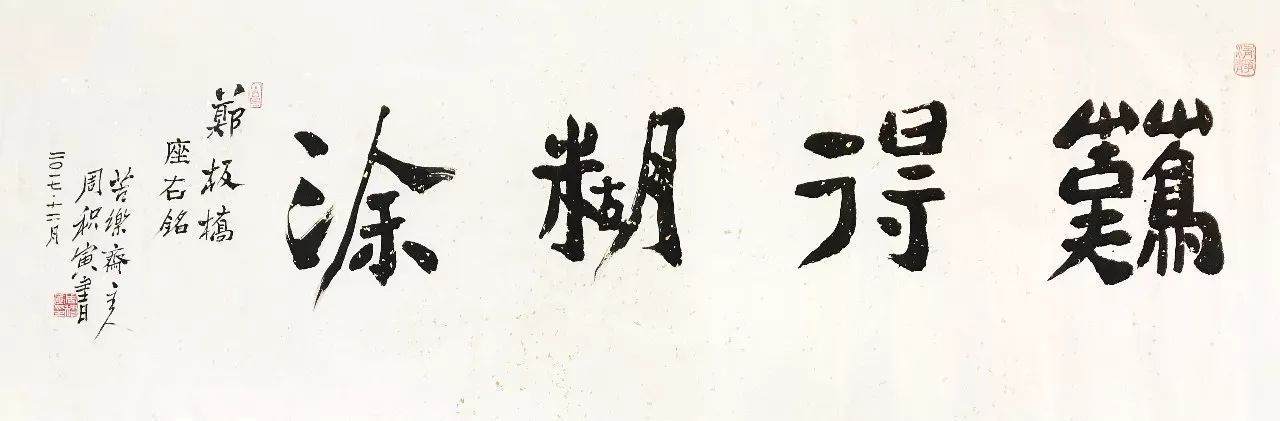 清靜
難得糊涂
鄭板橋
座右銘
苦樂齋主人
周积寅書
二〇一七.十二月